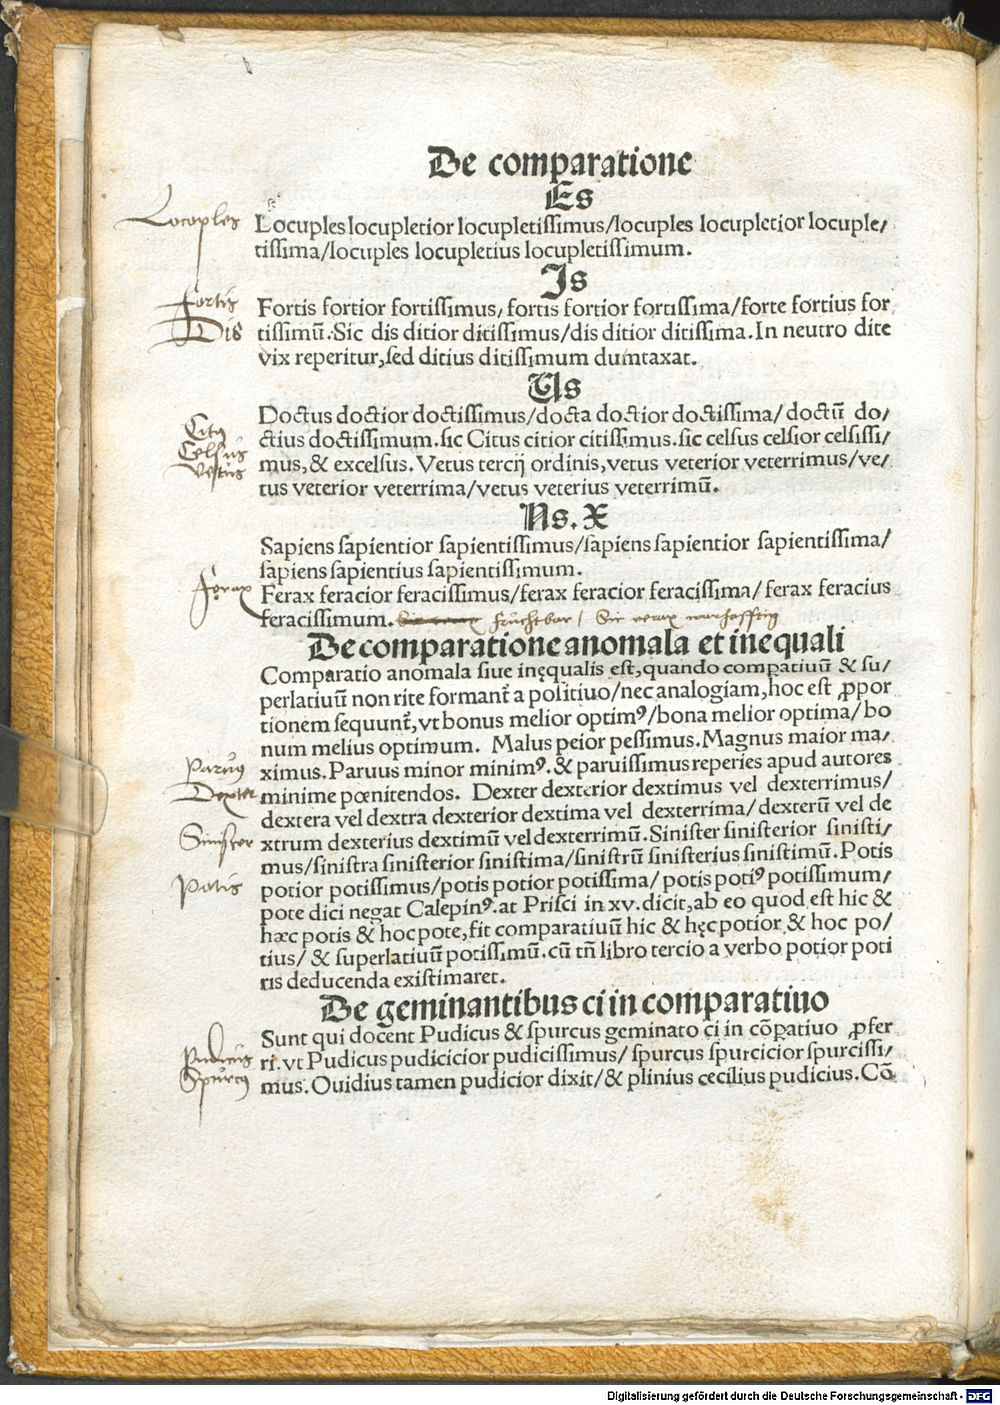 De comparatione
Es
Locoples
Locuples locupletior locupletissimus/locuples locupletior locuple/
tissima/locuples locupletius locupletissimum.
Is
Fortis
Fortis fortior fortissimus, fortis fortior fortissima/forte fortius for
Dis
tissimū. Sic dis ditior ditissimus/dis ditior ditissima. In neutro dite
vix reperitur, sed ditius ditissimum dumtaxat.
Us
Doctus doctior doctissimus/docta doctior doctissima/doctū do/
Citꝰ
ctius doctissimum. sic Citus citior citissimus. sic celsus celsior celsissi/
Celsus
mus, & excelsus. Vetus tercij ordinis, vetus veterior veterrimus/ve/
Vetus
tus veterior veterrima/vetus veterius veterrimū.
Ns. X
Sapiens sapientior sapientissimus/sapiens sapientior sapientissima/
sapiens sapientius sapientissimum.
Ferax
Ferax feracior feracissimus/ferax feracior feracissima/ferax feracius
feracissimum. fruchtbar/ Sic verax warhafftig
De comparatione anomala et inequali
Comparatio anomala siue inęqualis est, quando compatiuū & su/
perlatiuū non rite formant̃ a positiuo/nec analogiam, hoc est ꝓpor
tionem sequunt̃, vt bonus melior optimꝰ/bona melior optima/bo
num melius optimum. Malus peior pessimus. Magnus maior ma/
Paruꝰ
ximus. Paruus minor minimꝰ. & paruissimus reperies apud autores
Dexter
minime pœnitendos. Dexter dexterior dextimus vel dexterrimus/
dextera vel dextra dexterior dextima vel dexterrima/dexterū vel de
Sinister
xtrum dexterius dextimū vel dexterrimū. Sinister sinisterior sinisti/
mus/sinistra sinisterior sinistima/sinistrū sinisterius sinistimū. Potis
Potis
potior potissimus/potis potior potissima/potis potiꝰ potissimum/
pote dici negat Calepinꝰ. at Prisci in xv. dicit, ab eo quod est hic &
hæc potis & hoc pote, fit comparatiuū hic & hęc potior & hoc po/
tius/ & superlatiuū potissimū. cū tñ libro tercio a verbo potior poti
ris deducenda existimaret.
De geminantibus ci in comparatiuo
Sunt qui docent Pudicus & spurcus geminato ci in cōꝑatiuo ꝓfer
Pudicus
ri. vt Pudicus pudicicior pudicissimus/ spurcus spurcicior spurcissi/
Spurcꝰ
mus. Ouidius tamen pudicior dixit/& plinius cecilius pudicius. Cō
Digitalisierung gefördert durch die Deutsche Forschungsgemeinschaft - DFG